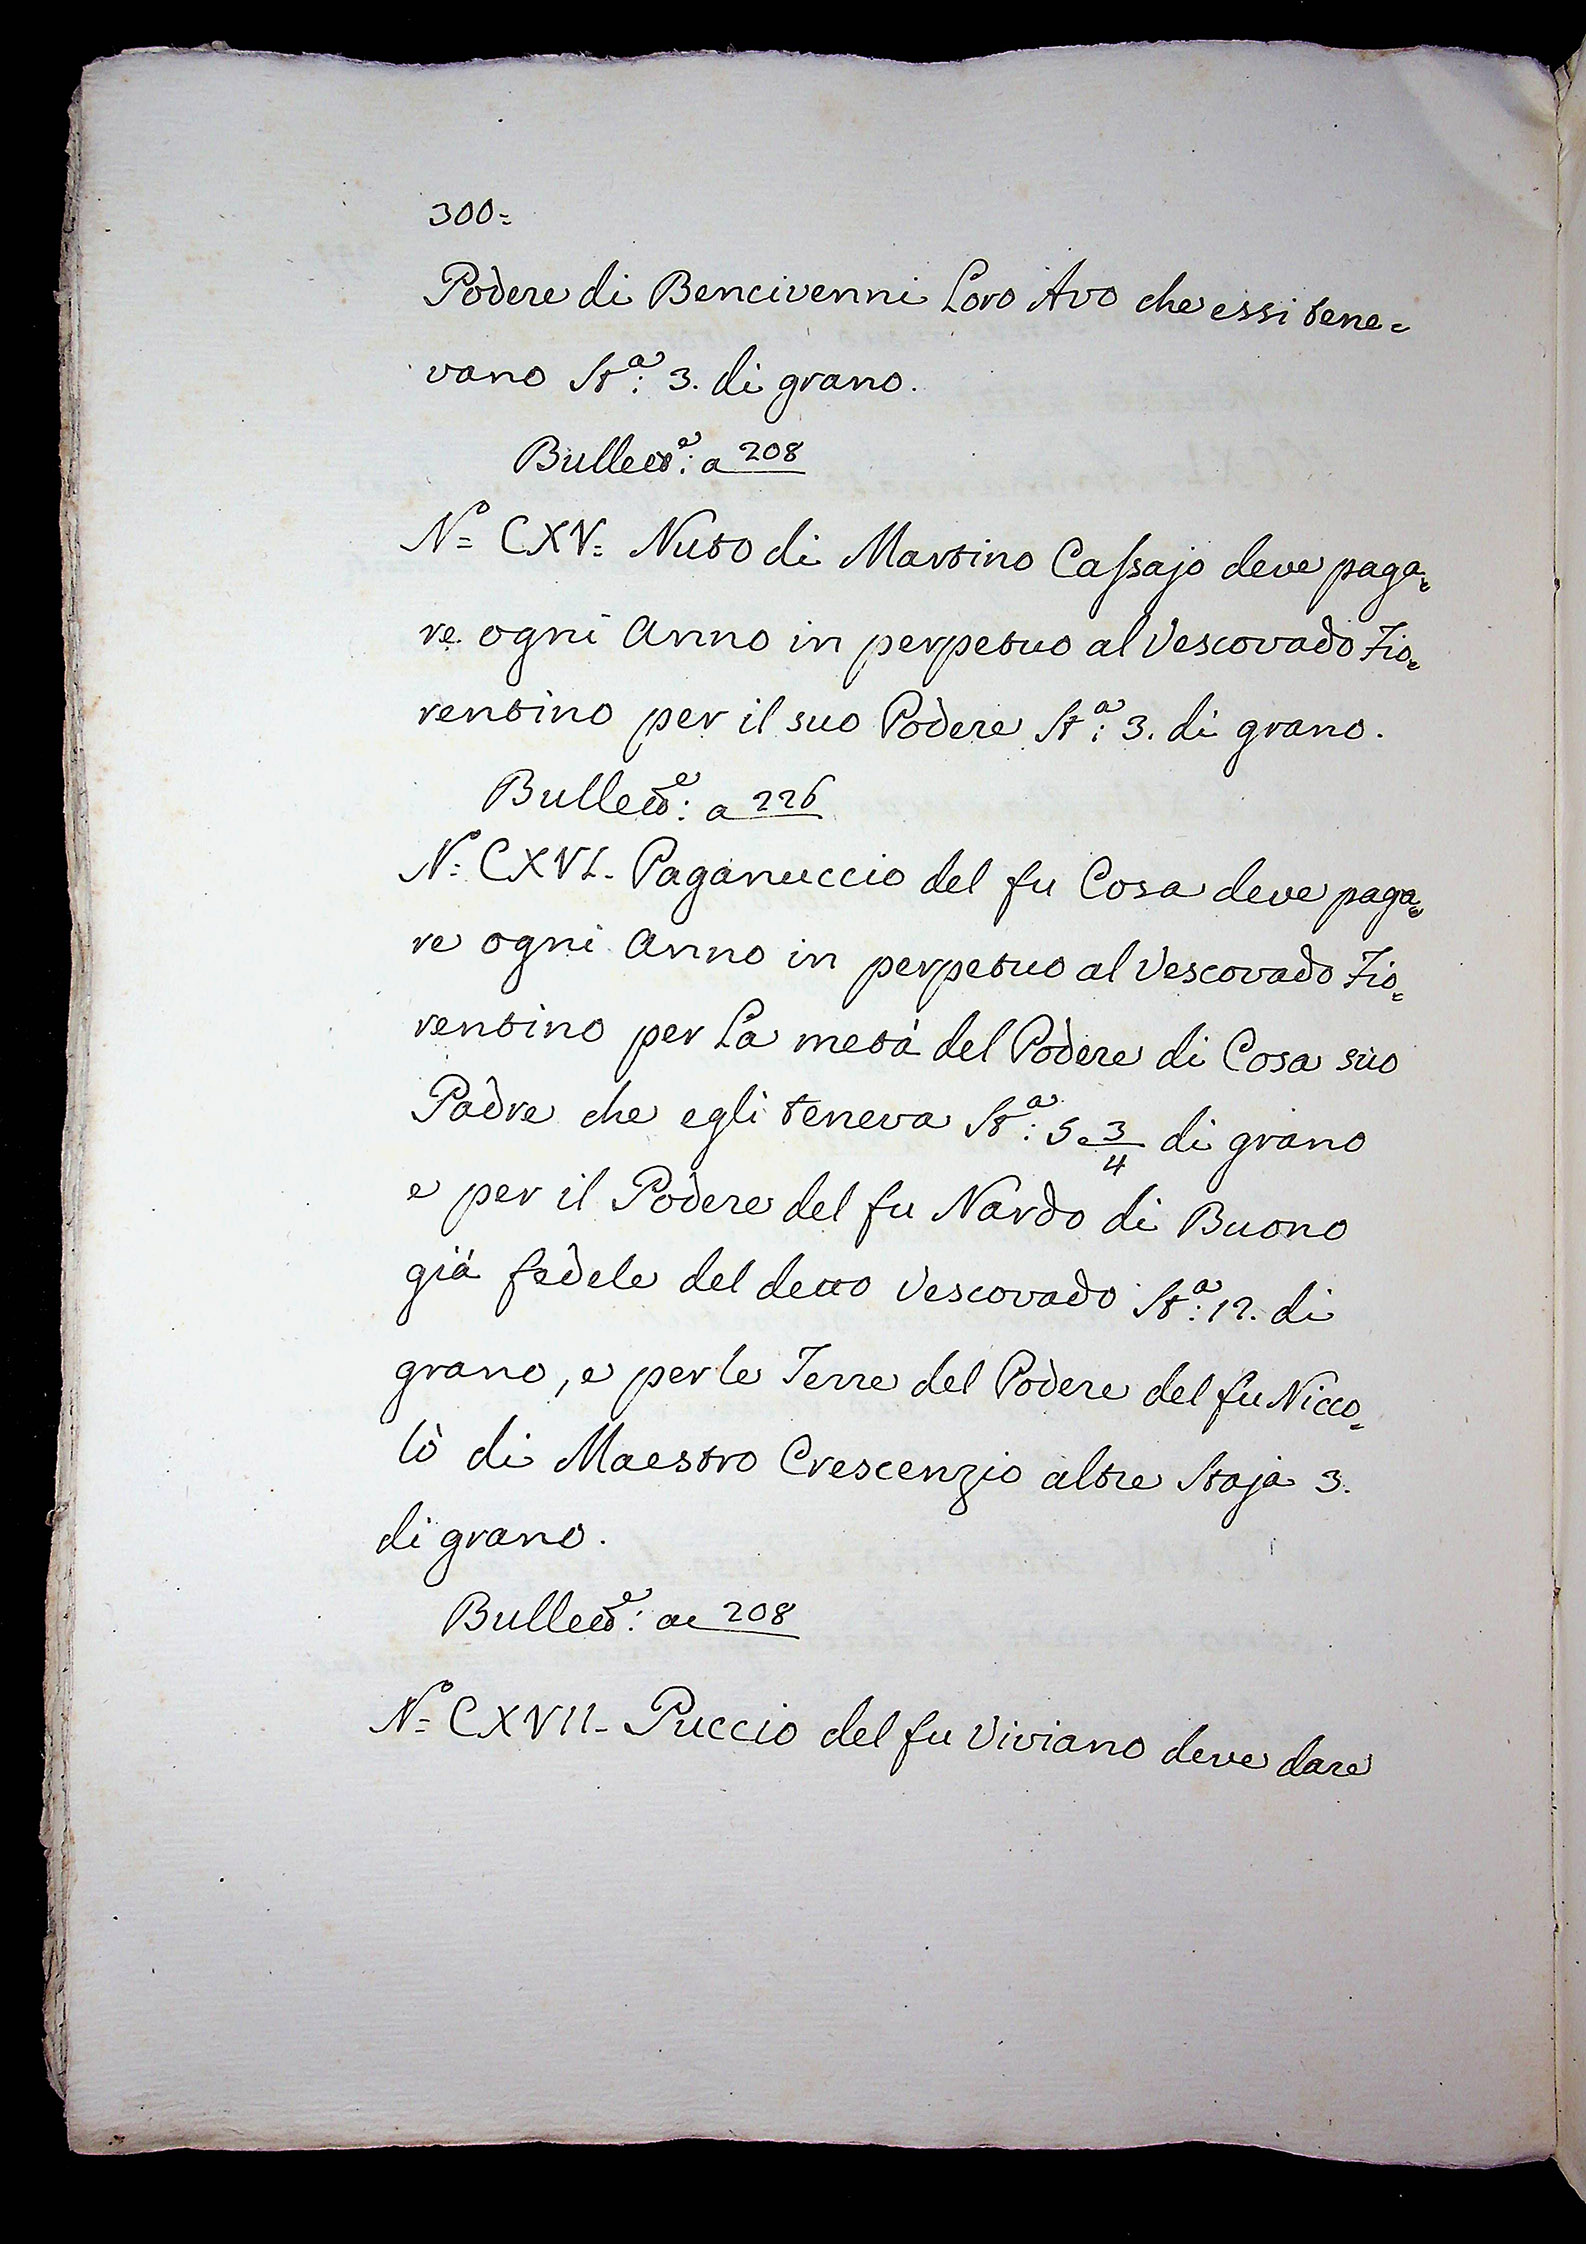 300=
Podere di Bencivenni Loro Avo che essi tene=
vano St.ª: 3. di grano.
Bullett.ª: a 208
N.º= CXV= Nuto di Martino Cassajo deve paga=
re ogni Anno in perpetuo al Vescovado Fio=
rentino per il suo Podere St.ª: 3. di grano.
Bullett.ª: a 226
N.º= CXVI- Paganuccio del fu Cosa deve paga=
re ogni Anno in perpetuo al Vescovado Fio=
rentino per La metà del Podere di Cosa suo
Padre che egli teneva St.ª: 5. 3/4 di grano
e per il Podere del fu Nardo di Buono
già fedele del detto Vescovado St.ª: 12. di
grano, e per le Terre del Podere del fu Nicco=
lò di Maestro Crescenzio altre Staja 3.
di grano.
Bullett.ª: a 208
N.º= CXVII- Puccio del fu Viviano deve dare